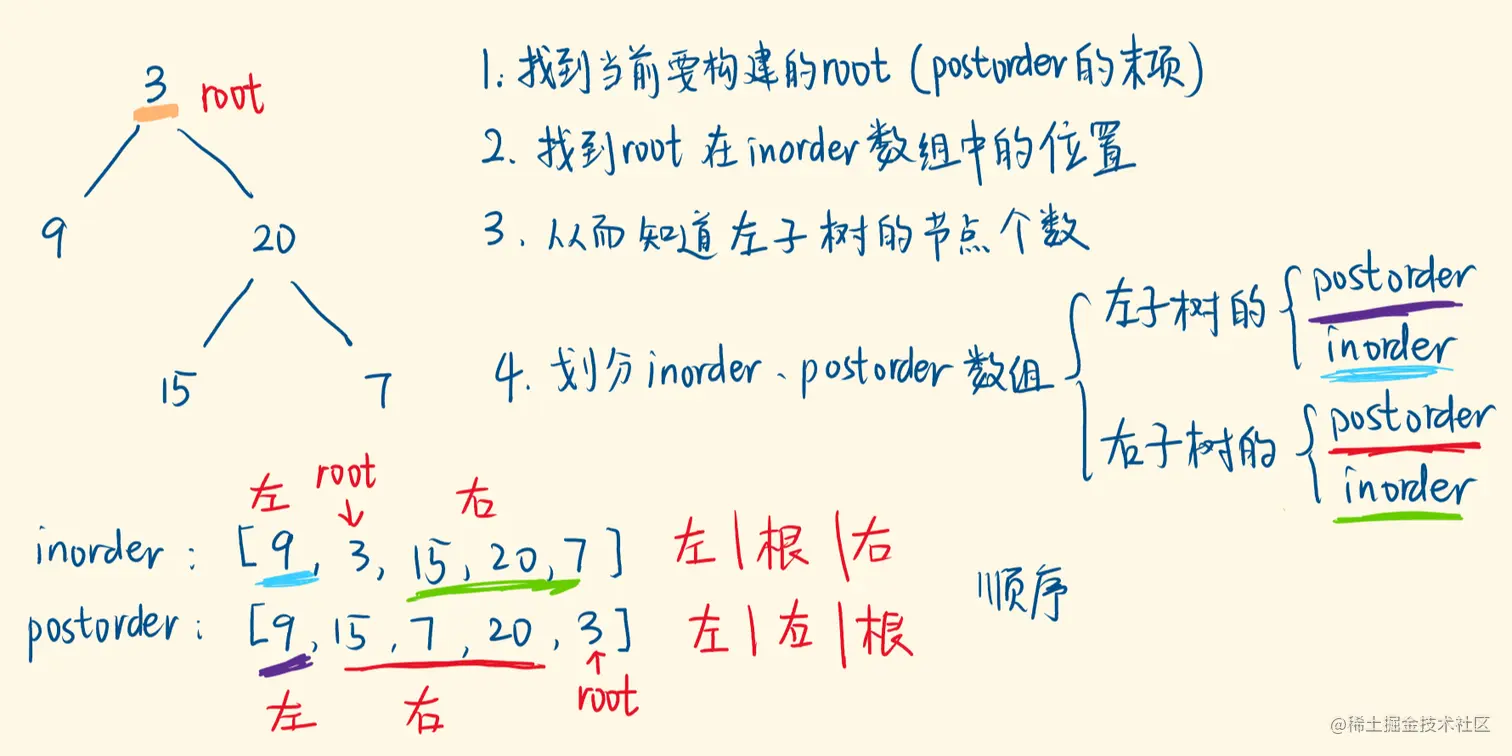 3 root
9 20
15 7
1. 找到当前要构建的root (postorder的末项)
2. 找到root 在inorder数组中的位置
3. 从而知道左子树的节点个数
4. 划分inorder、postorder数组
左子树的 postorder
inorder
右子树的 postorder
inorder
左 root 右
inorder: [9, 3, 15, 20, 7] 左|根|右
postorder: [9, 15, 7, 20, 3] 左|右|根
顺序
左 右 root
@稀土掘金技术社区